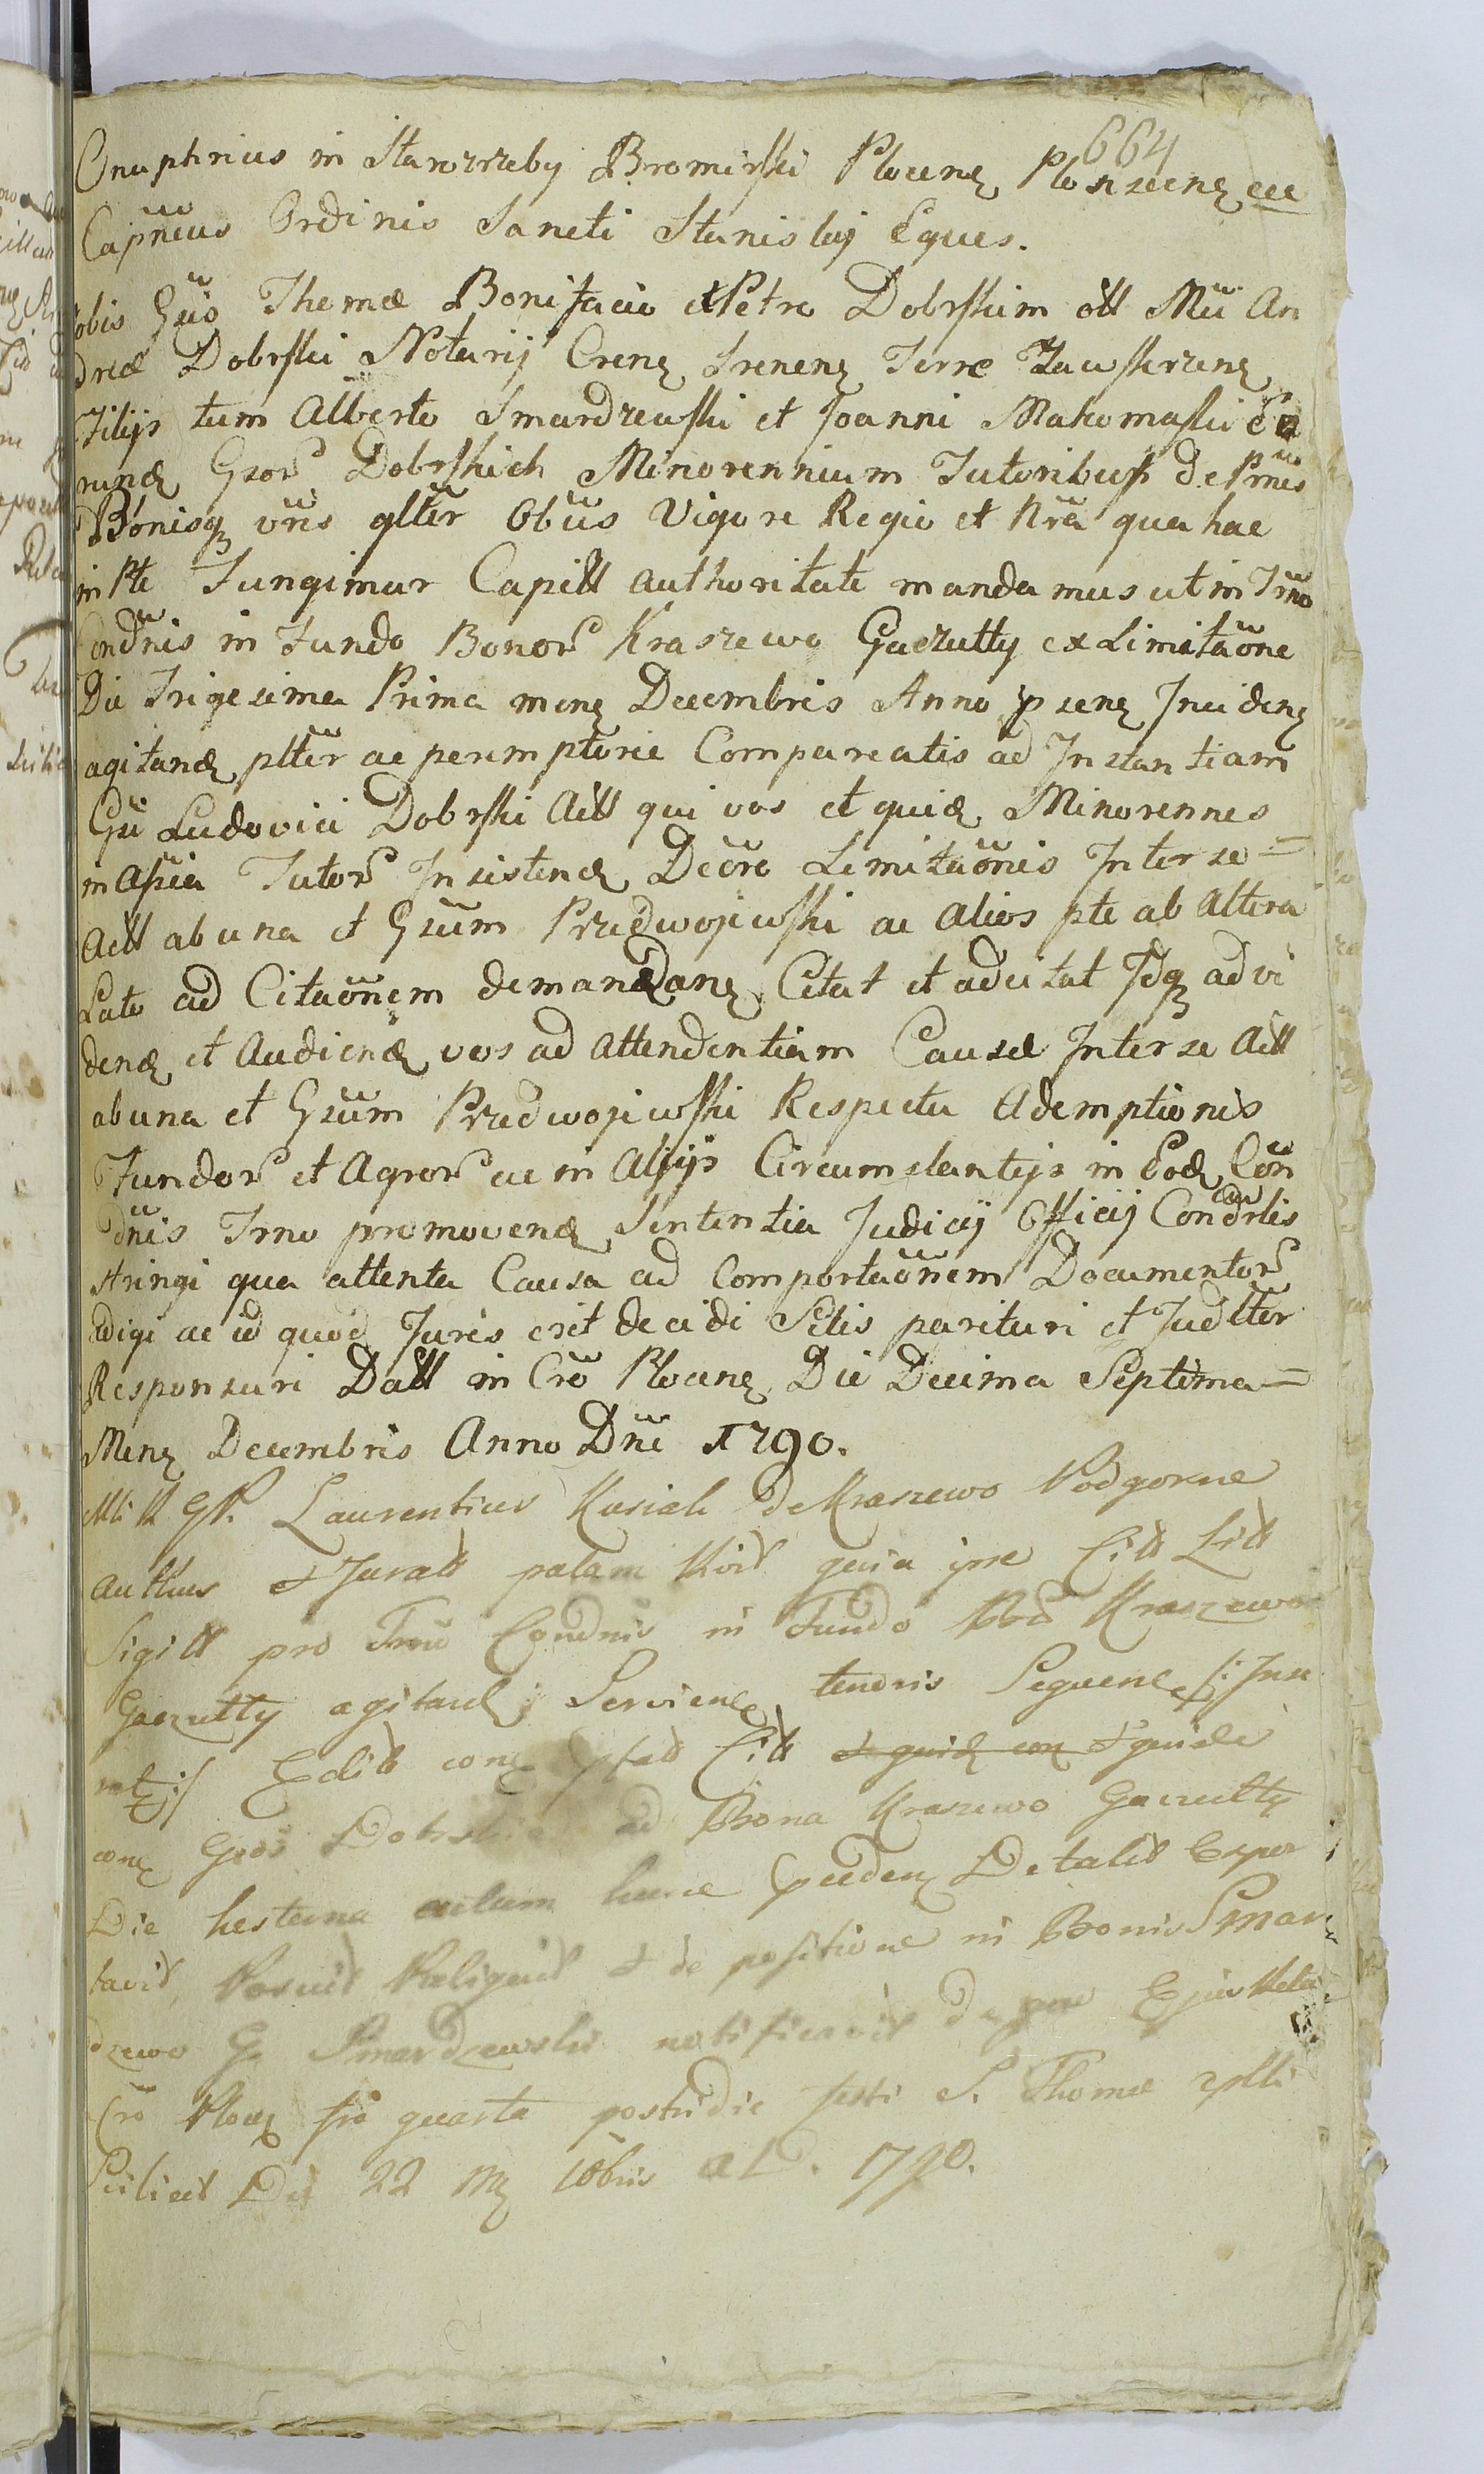 664
Onuphrius in Starorzeby Bromirski Plocenȩ Plonscenȩ ccc
Capneus Ordinis Sancti Stanislaj Eques.
obis Gsis Thomæ Bonifacio et Petro Dobrskim oll Mii An
dreæ Dobrski Notarij Crenȩ Srenenȩ Terræ Zawskrzenȩ
Filijs tum Alberto Smardzewski et Joanni Makomaski
rund Gsor Dobrskich Minorennium Tutoribus de Prnis
Bonisq vris glter Obus Vigore Regio et Nra qua hac
in Pte Fungimur Capitt authoritate mandamus ut in Trno
Condnis in Fundo Bonor Kraszewo Gaczulty ex Limitaone
Die Trigesima Prima menȩ Decembris Anno psenȩ Incidenȩ
agitand plter ac peremptorie Compareatis ad Instantiam
Gsi Ludovici Dobrski Actt qui vos et quid Minorennes
in Assia Tutor Insistend Decre Limitaonis Inter se =
Actt ab una et Gsum Przedwojewski ac alios pte ab altera
Lato ad Citaonem demandanȩ Citat et adcitat Idq ad vi
dend et Audiend vos ad attendentiam Causæ Inter se Actt
ab una et Gsum Przedwojewski Respectu Ademptionis
Fundor et Agror ac in Alijs Circumstantijs in Eod Con
dnis Trno promovend Sententia Judicij Officij Condrlis
stringi qua attenta Causa ad Comportaonem Documentor
adigi ac id quod Juris erit decidi Setis parituri et Judlter
Responsuri Datt in Cro Plocenȩ Die Decima Septima =
Menȩ Decembris Anno Dni 1790.
Laurentius Kusiak de Kraszewo Podgorne
authus et Juratt palam quia ipse Citt Litt
Sigitt pro Trno Condnis in Fundo Bod Kraszewo
Gaczutty agitand Servienȩ tenoris Sequenȩ /: Inse
ratȩ :/ Edit conȩ Citt et quid conȩ & quidē
conȩ Gsos Dobrskie ad Bona Kraszewo Gaczutty
Die hesterna actum hunc Detulit Expor
tavit, Posuit Reliquit & de positione in Bonis Smar
dzewo G Smardzewski notificavit
Cro Plocȩ fria quarta postridie festi S. Thomæ aplli
Scilicet Die 22 Mȩ 10bris A D. 1790.